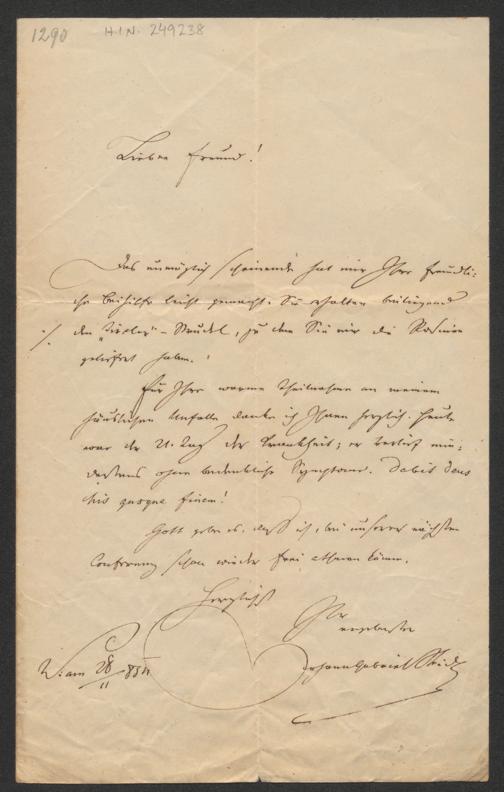 1290 H.I.N. 249238
Lieber Freund!
Das unmöglich scheinende hat mir Ihre freundli-
che Beihilfe leicht gemacht. Sie erhalten beiliegend
./. den - Strudel, zu dem Sie mir die Rosinen
geliefert haben.
Für Ihre warme Theilnahme an meinem
häuslichen Unfalle danke ich Ihnen herzlich. Heute
war der 21. Tag der Krankheit; er verlief min-
destens ohne bedenkliche Symptome. Dabit deus
his quoque finem!
Gott gebe es, daß ich, bei unserer nächsten
Conferenz schon wieder frei athmen könne.
Herzlichst
Ihr
ergebenster
Johann Gabriel Seidl
Wien 28/11